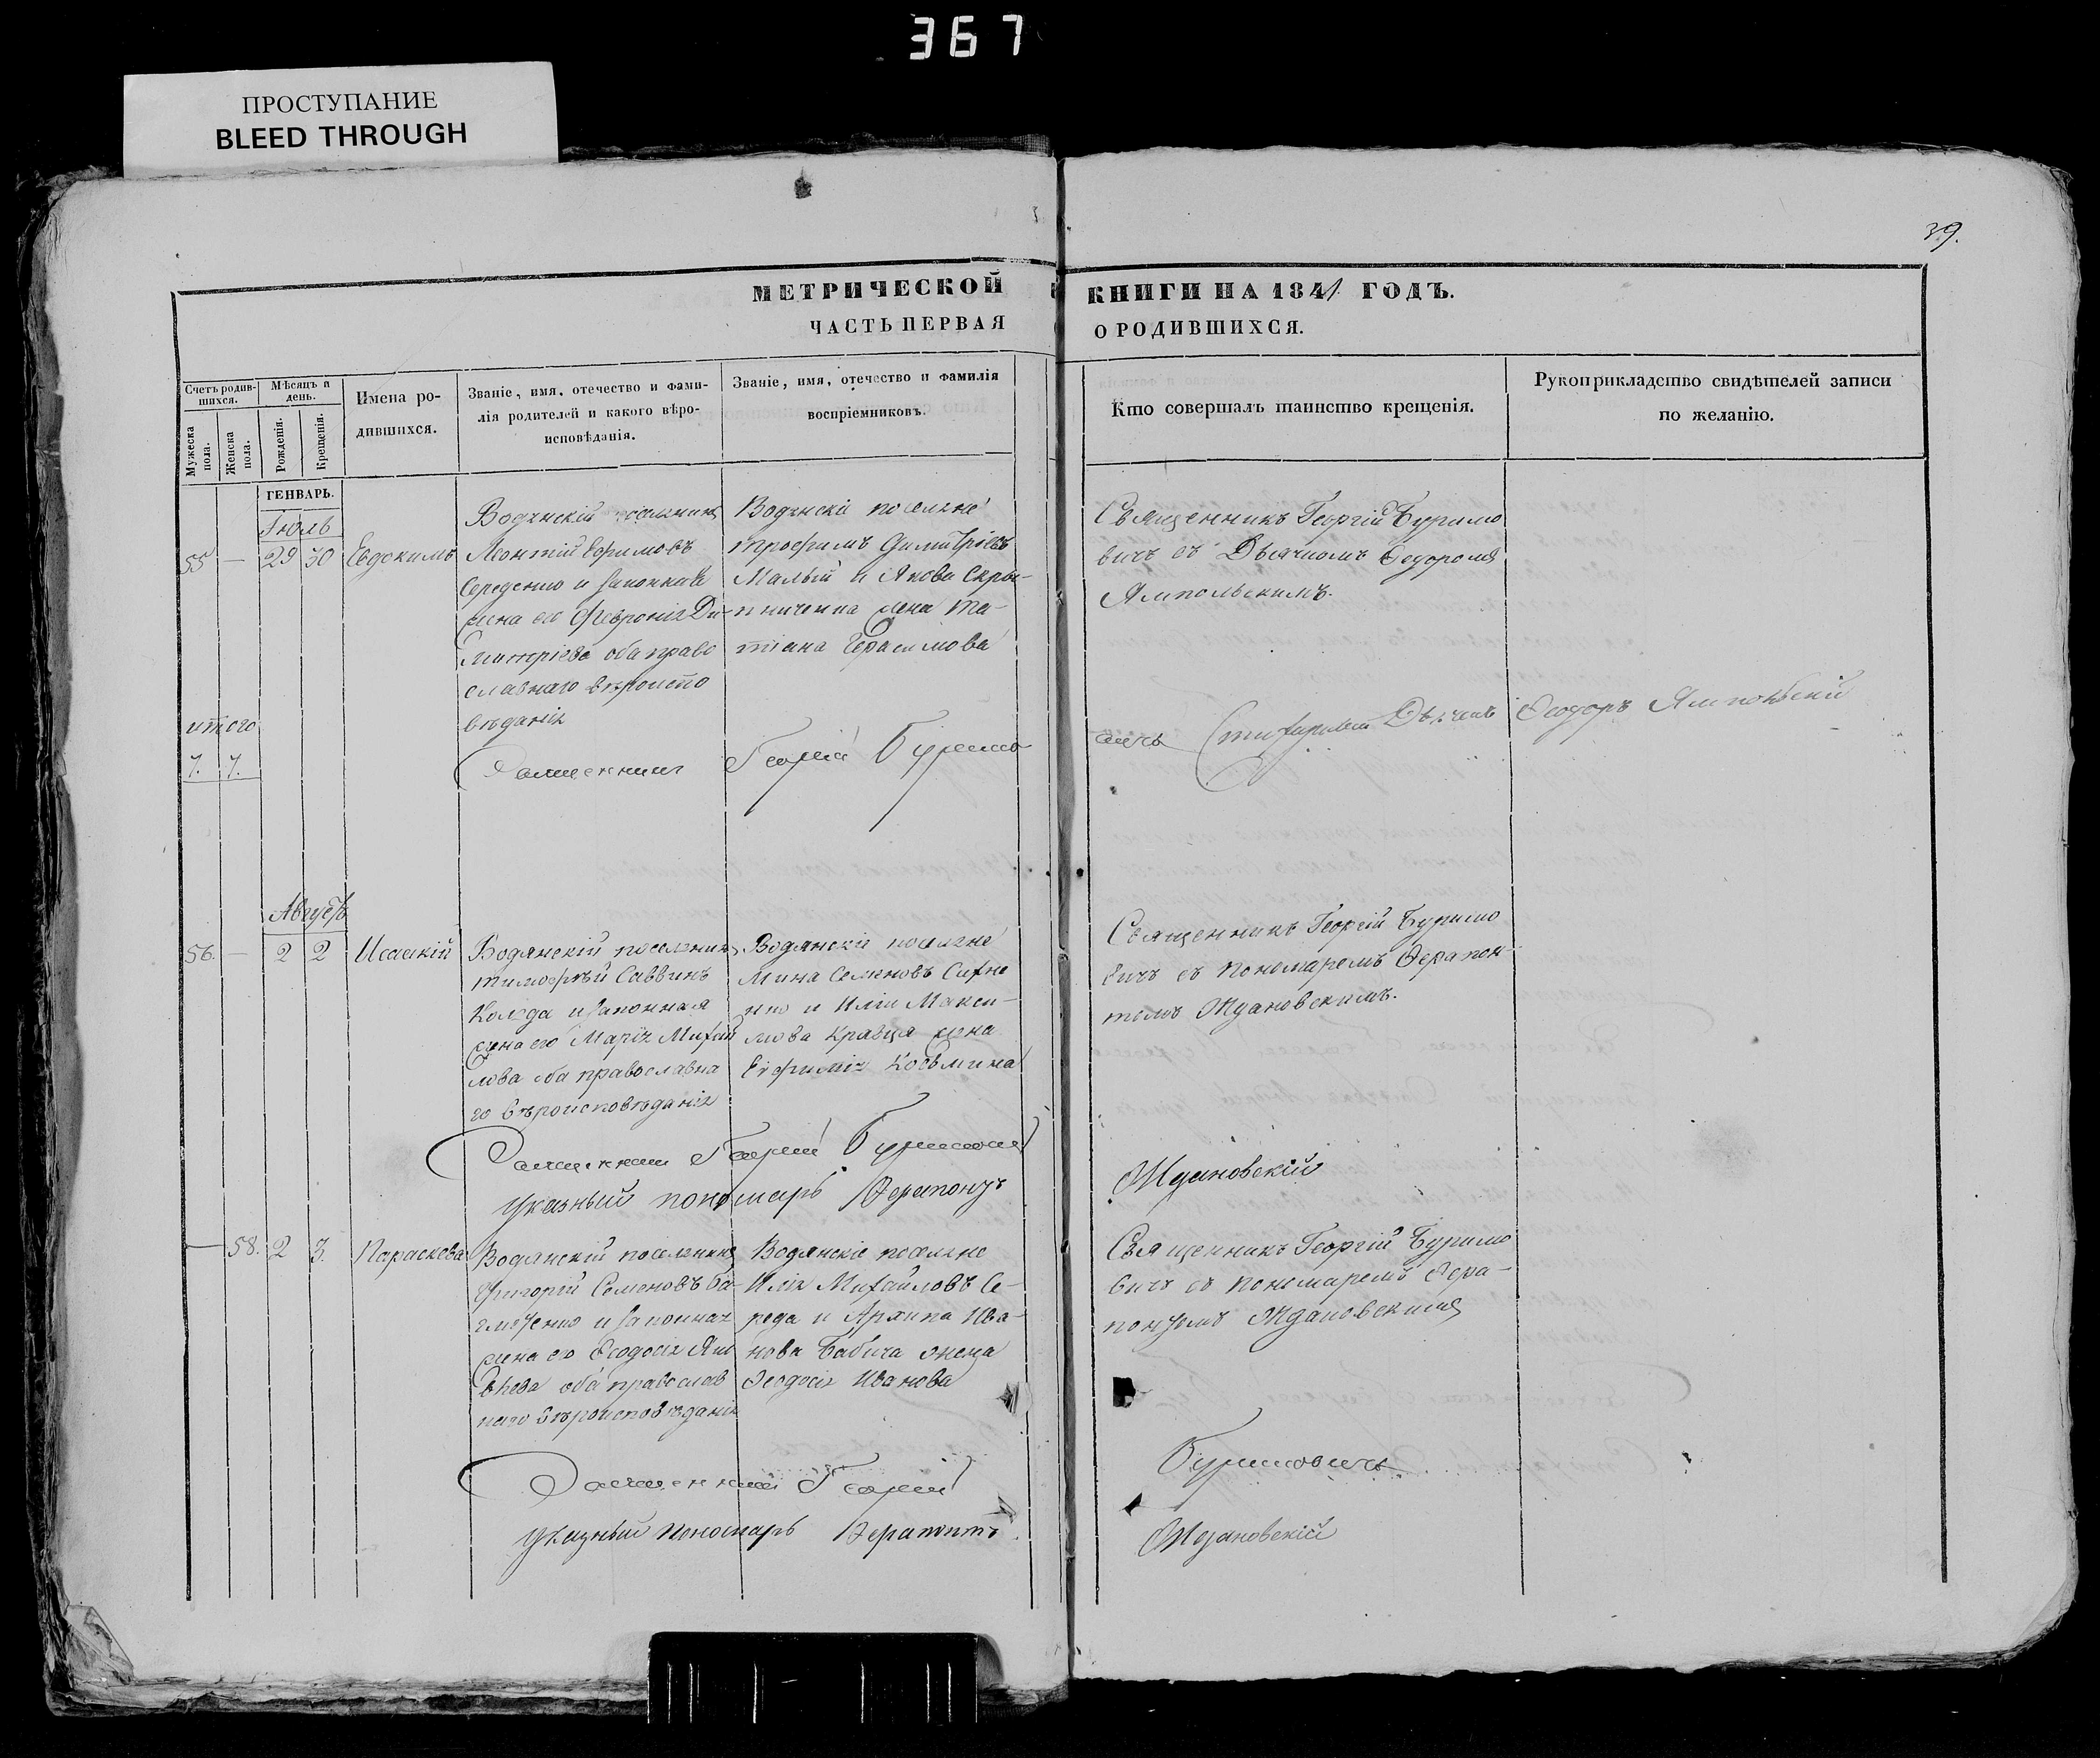 367
ПРОСТУПАНИЕ
BLEED THROUGH
39.
МЕТРИЧЕСКОЙ КНИГИ НА 1841 ГОДЪ.
ЧАСТЬ ПЕРВАЯ О РОДИВШИХСЯ.
Счетъ родившихся.
Мужеска пола.
Женска пола.
Мѣсяцъ и день.
Рожденія.
Крещенія.
Имена родившихся.
Званіе, имя, отечество и фами-
лія родителей и какого вѣро-
исповѣданія.
Званіе, имя, отечество и фамилія
воспріемниковъ.
Кто совершалъ таинство крещенія.
Рукоприкладство свидѣтелей записи
по желанію.
ГЕНВАРЬ.
Іюль
55 — 29 30 Евдокимъ
Водянскій поселянинъ
Леонтій Ефимовъ
Середенко и законная
жена его Феvронія Ди-
митріева оба право
славнаго вѣроиспо
вѣданія
Водянскіе поселяне
Трофимъ Димитріевъ
Малый и Якова Скры-
пниченка жена Та-
тіана Герасимова
Священникъ Георгій Буримо
вичъ съ Дьячкомъ Ѳеодоромъ
Ямпольскимъ.
итого
7. 7.
Священникъ Георгій Буримо
вичъ Стихарный Дьячекъ Ѳеодоръ Ямпольскій
Августъ
56. — 2 2 Исаакій
Водянскій поселянинъ
Тимофѣй Саввинъ
Коляда и законная
жена его Марія Михай
лова оба православна
го вѣроисповѣданія
Водянскіе поселяне
Мина Семеновъ Сихне
нко и Иліи Макси-
мова Кравца жена
Евфимія Косьмина
Священникъ Георгій Буримо
вичъ съ пономаремъ Ѳерапон-
томъ Ждановскимъ.
Священникъ Георгій Буримович
Указный пономарь Ѳерапонтъ
Ждановскій
— 58. 2 3. Параскева
Водянскій поселянинъ
Григорій Семеновъ
и законная
жена его Ѳеодосія
оба православ
наго вѣроисповѣданія
Водянскіе поселяне
Илія Михайловъ Се-
реда и Архипа Ива-
нова Бабича жена
Ѳеодосія Иванова
Священникъ Георгій Буримо
вичъ съ пономаремъ Ѳера-
понтомъ Ждановскимъ
Священникъ Георгій
Буримовичъ
Указный пономарь Ѳерапонтъ
Ждановскій